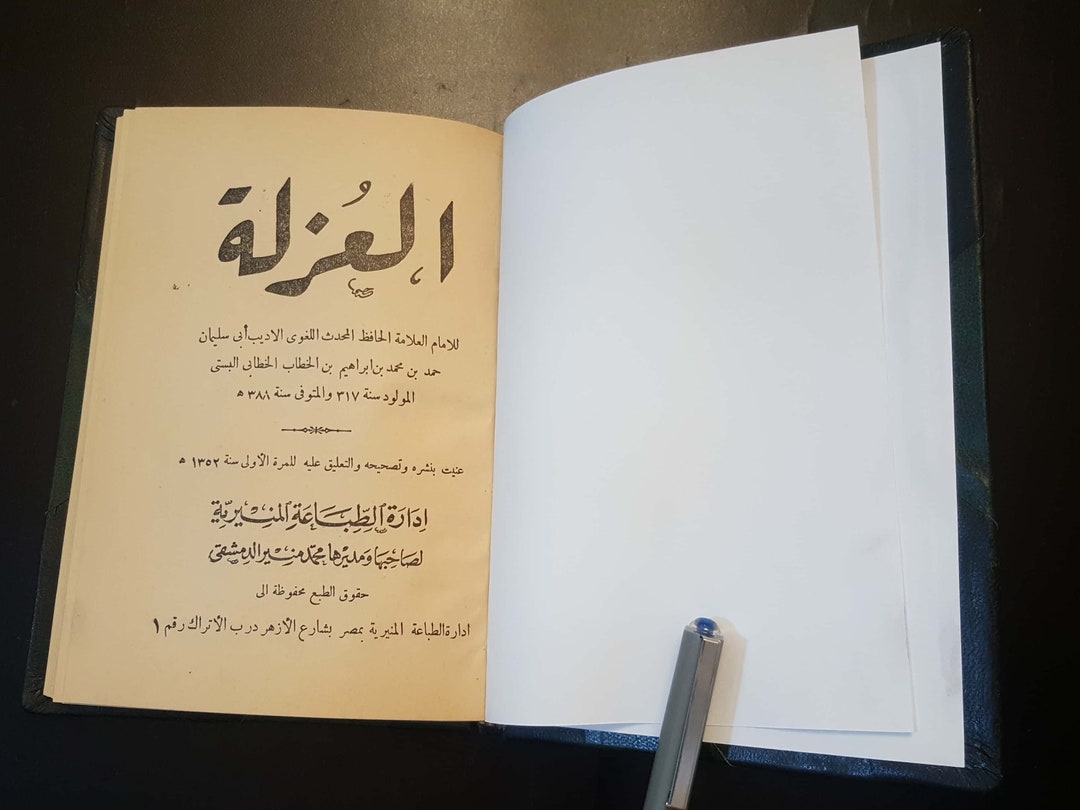 العُزلة
للامام العلامة الحافظ المحدث اللغوى الاديب أبى سليمان
حمد بن محمد بن ابراهيم بن الخطاب الخطابى البستى
المولود سنة ٣١٧ والمتوفى سنة ٣٨٨ ه
عنيت بنشره وتصحيحه والتعليق عليه للمرة الأولى سنة ١٣٥٢ ه
اِدَارَة الطِّبَاعَةِ المُنِيرِيَّةِ
لصَاحِبهَا وَمديرهَا محمّد منير الدمشقى
حقوق الطبع محفوظة الى
ادارة الطباعة المنيرية بمصر بشارع الأزهر درب الأتراك رقم ١